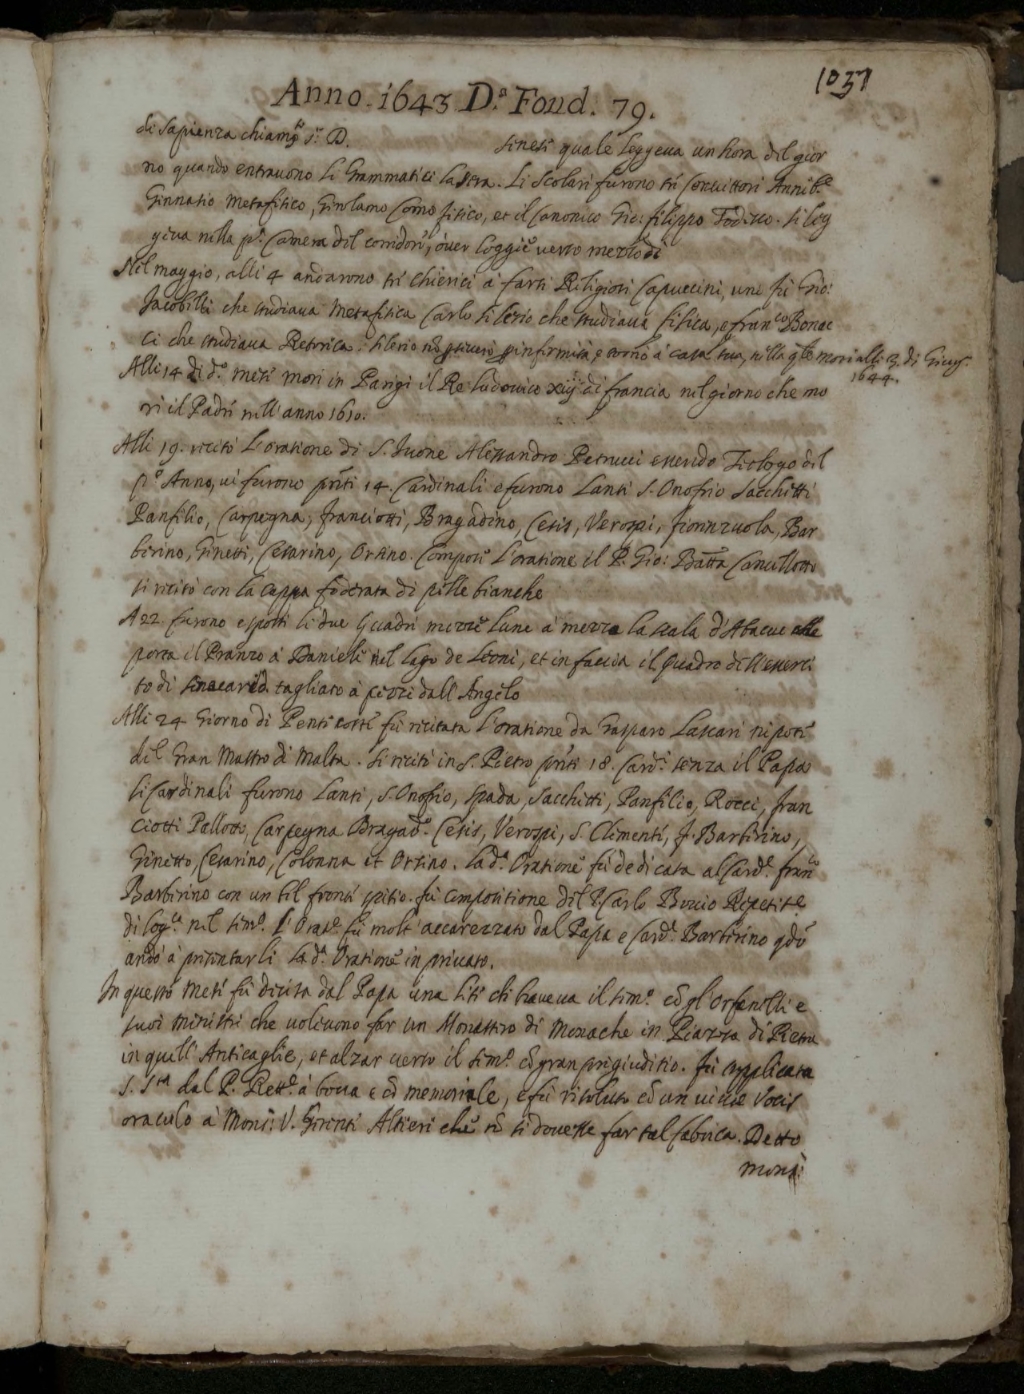 1037
Anno. 1643 D.ª Fond. 79.
di Sapienza s.r D. quale leggeua un hora del gior
no quando entrauono li Grammatici la sera. Li Scolari furono tri Conuittori Annib.e
Ginnasio Metafisico, Girolamo Como fisico, et il Canonico Gio: filippo si leg
geua nella p.ª Camera del corridore, ouer loggie uerso mezzo dì
Nel maggio, alli 4 andarono tri chierici à farsi Religiosi Capuccini, uno fù Gio:
Jacobilli che studiaua Metafisica Carlo Silerio che studiaua fisica, e fran.co Bonac
ci che studiaua Retorica. Silerio nō infirmità, e tornò à casa sua, nella q̄le morì alli 3. di Giug.
1644.
Alli 14 di d.º mese morì in Parigi il Re Ludouico xiij di francia nel giorno che mo
rì il Padre nell'anno 1610.
Alli 19. recitò l'oratione di S. Iuone Alessandro Petrucci essendo Teologo del
p.º Anno, ui furono pn̄ti 14. Cardinali e furono Lanti S. Onofrio Sacchetti
Panfilio, Carpegna, franciotti, Bragadino, Cesis, Verospi, fiorinzuola, Bar
berino, Ginetti, Cesarino, Orsino. Compose l'oratione il P. Gio: Batt̄a Cancellotto
si recitò con la cappa foderata di pelle bianche
A 22 furono esposti li due Quadri mezze lune à mezza la scala d'Abacuc che
porta il Pranzo à Daniele nel lago de Leoni, et in faccia il Quadro dell'esserci
to di tagliato à pezzi dall'Angelo
Alli 24 Giorno di Pentecoste fù recitata l'oratione da Gasparo Lascari nipote
del Gran Mastro di Malta. Si recitò in S. Pietro pn̄ti 18. Card.i senza il Papa
li Cardinali furono Lanti, S. Onofrio, Spada, Sacchetti, Panfilio, Rocci, fran
ciotti Pallotto, Carpegna Bragad.º Cesis, Verospi, S. Clemente, f. Barberino,
Ginetto, Cesarino, Colonna et Orsino. la d.ª Oratione fù dedicata al Card.e fran.co
Barberino con un bel fronte spitio. fù compositione del P. Carlo Bouio Repetit.e
di log.ca nel sem.º l'Orat.e fù molt'accarezzato dal Papa e Card.e Barberino qdō
andò à presentarli la d.ª Oratione in priuato.
In questo mese fù decisa dal Papa una lite ch'haueua il sem.º cō gl'Orfanelli e
suoi ministri che uoleuono far un Monastero di Monache in Piazza di Pietra
in quell'Anticaglie, et alzar uerso il sem.º cō gran pregiuditio. fù supplicata
S. S.tà dal P. Rett.e à bocca e cō memoriale, e fù risoluto cō un uiue vocis
oraculo à Mons.r V. Gerente Altieri che nō si douesse far tal fabrica. Detto
Mons.r